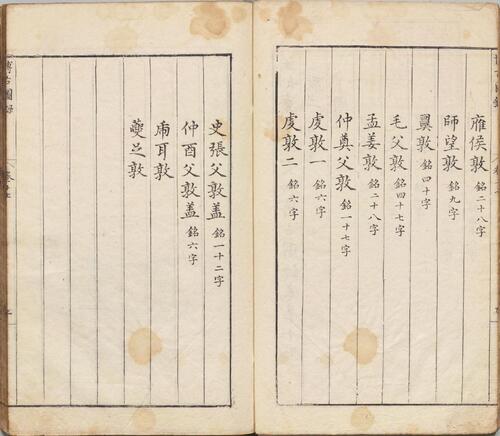 雁侯敦 銘二十八字
師望敦 銘九字
翼敦 銘四十字
毛父敦 銘四十七字
孟姜敦 銘二十八字
仲奠父敦 銘一十七字
虔敦一 銘六字
虔敦二 銘六字
史張父敦盖 銘一十二字
仲酉父敦盖 銘六字
耳敦
敦
博古圖錄